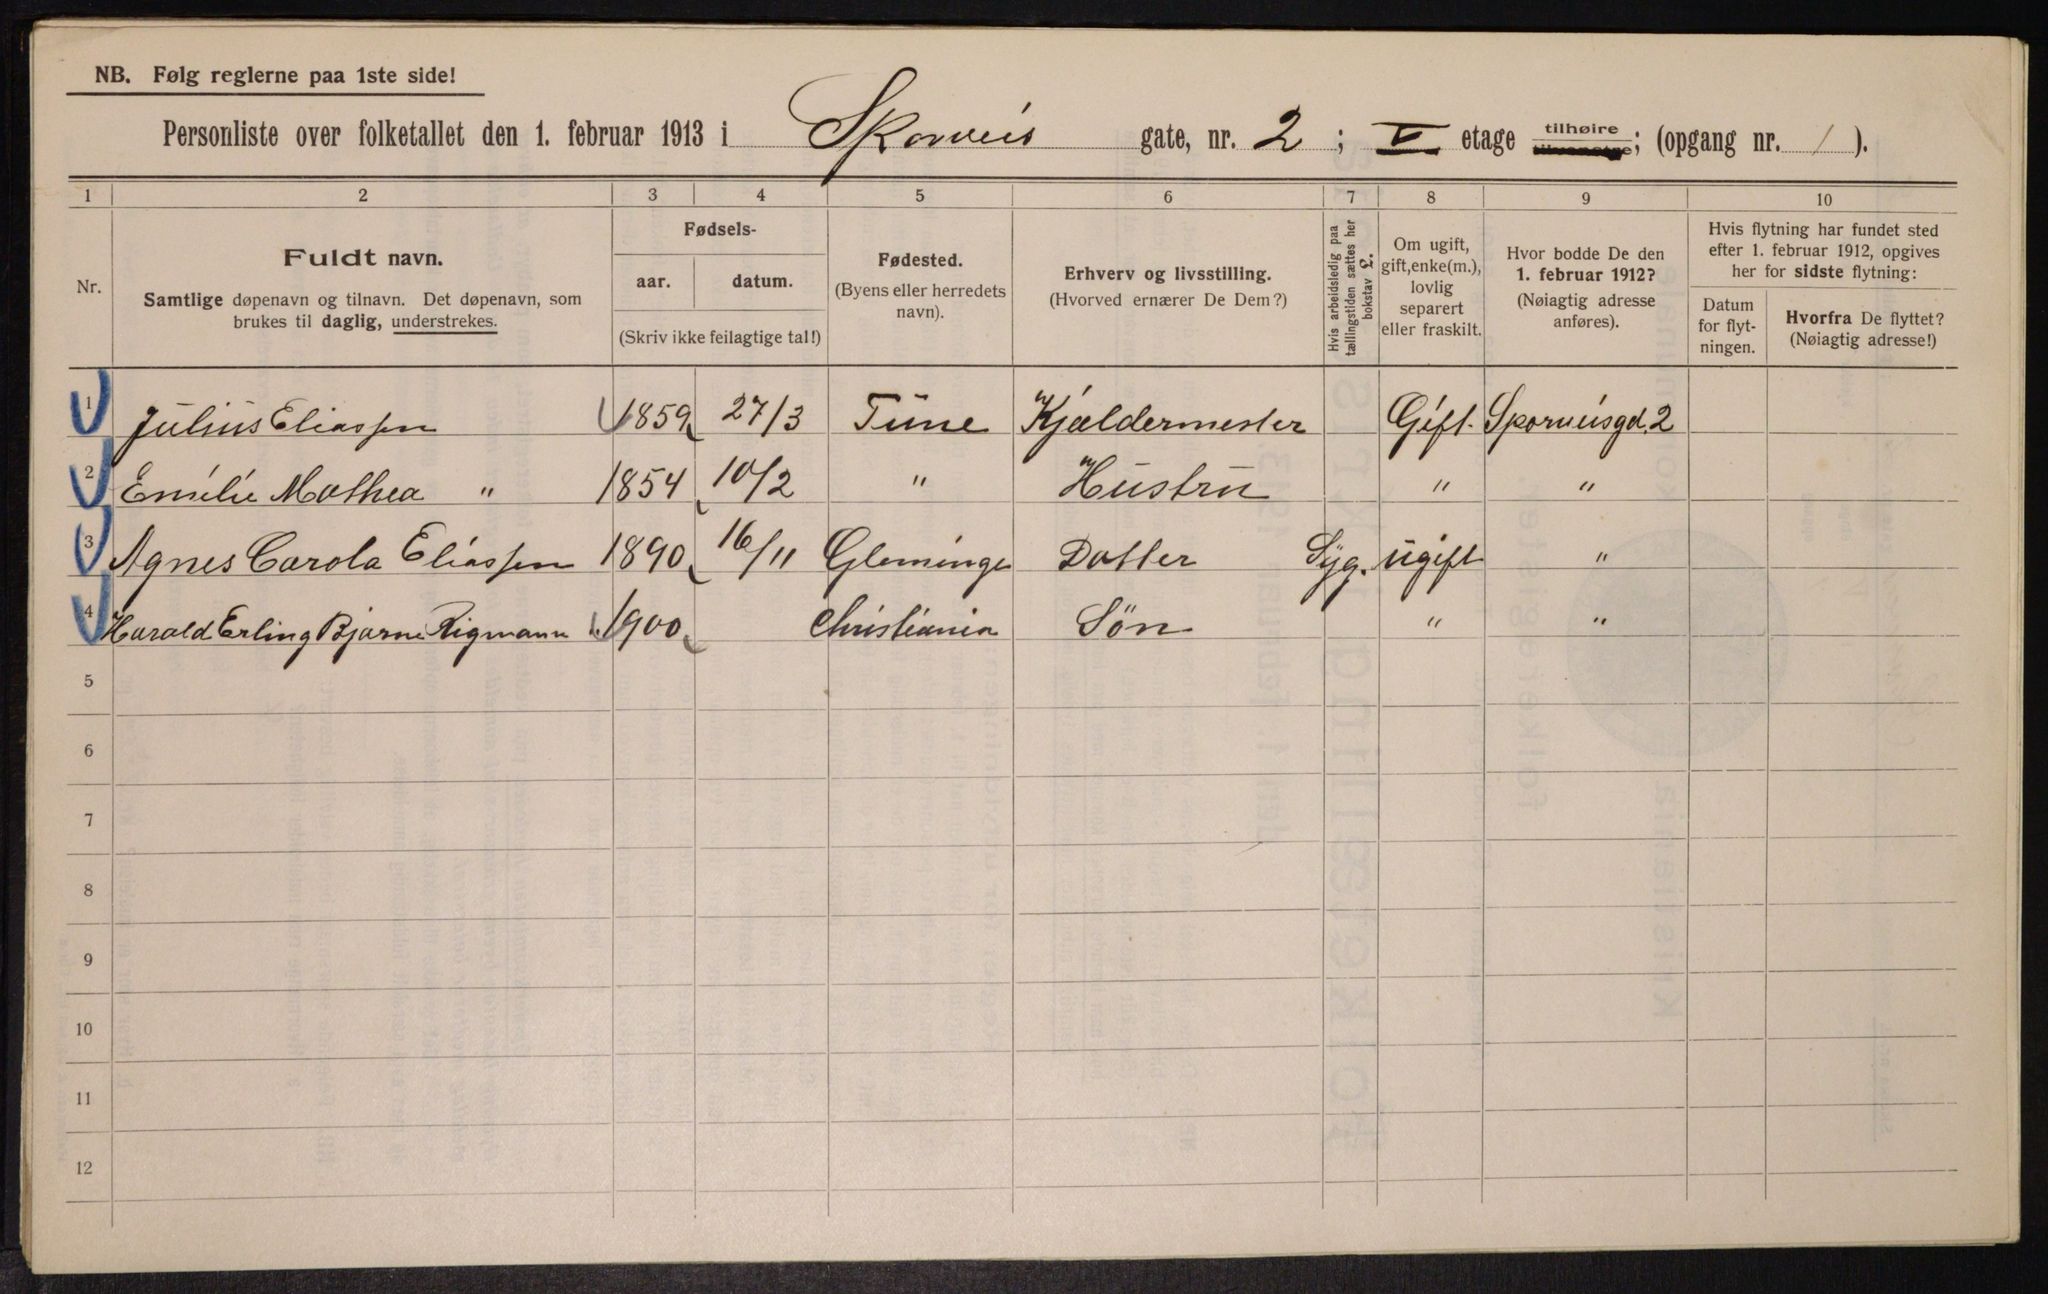 NB. Følg reglerne paa 1ste side!
Personliste over folketallet den 1. februar 1913 i Sporveis gate, nr. 2 ; V etage tilhøire tilvenstre; (opgang nr. 1).
1 2 3 4 5 6 7 8 9 10
Nr.
Fuldt navn.
Samtlige døpenavn og tilnavn. Det døpenavn, som
brukes til daglig, understrekes.
Fødsels-
aar. datum.
(Skriv ikke feilagtige tal!)
Fødested.
(Byens eller herredets
navn).
Erhverv og livsstilling.
(Hvorved ernærer De Dem?)
Hvis arbeidsledig paa
tællingstiden sættes her
bokstav L.
Om ugift,
gift, enke(m.),
lovlig
separert
eller fraskilt.
Hvor bodde De den
1. februar 1912?
(Nøiagtig adresse
anføres).
Hvis flytning har fundet sted
efter 1. februar 1912, opgives
her for sidste flytning:
Datum
for flyt-
ningen.
Hvorfra De flyttet?
(Nøiagtig adresse!)
1 Julius Eliassen 1859 27/3 Tune Kjældermester Gift Sporveisgd. 2
2 Emilie Mathea " 1854 10/2 " Hustru " "
3 Agnes Carola Eliassen 1890 16/11 Gleminge Datter Syg. ugift "
4 Harald Erling Bjarne Rigmann " 1900 Christiania Sön " "
5
6
7
8
9
10
11
12